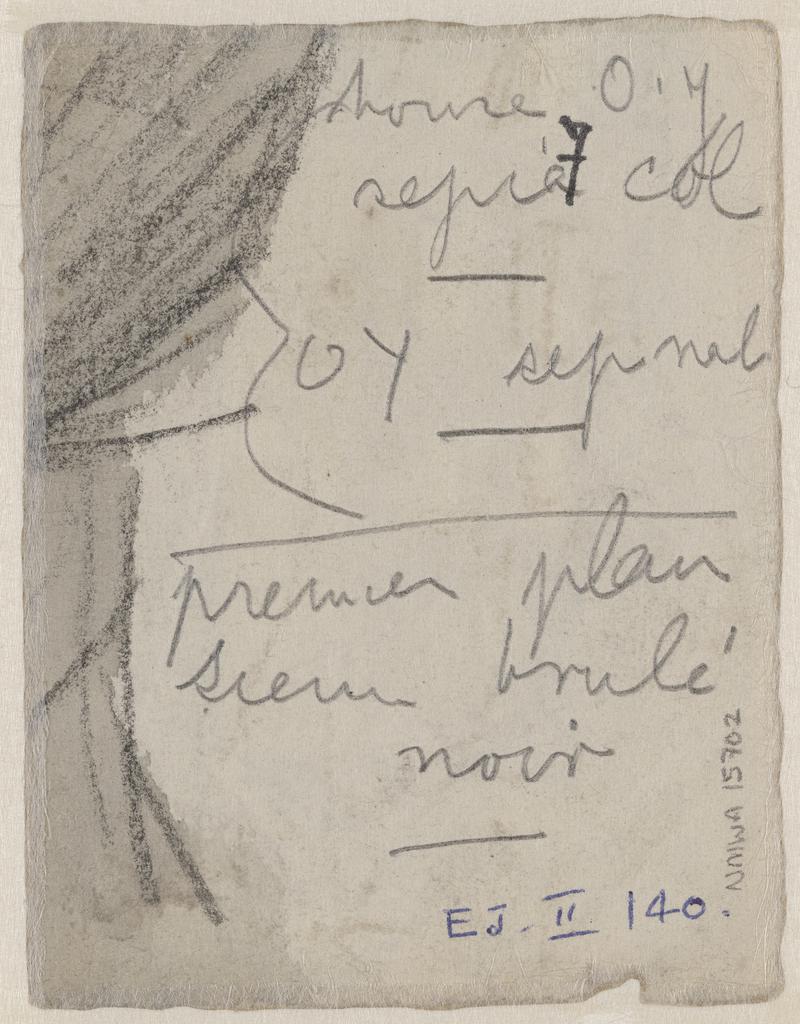 house O.Y
sepia col
7
OY sep nat
premier plan
brulé
noir
EJ. II 140.
NMWA 15702